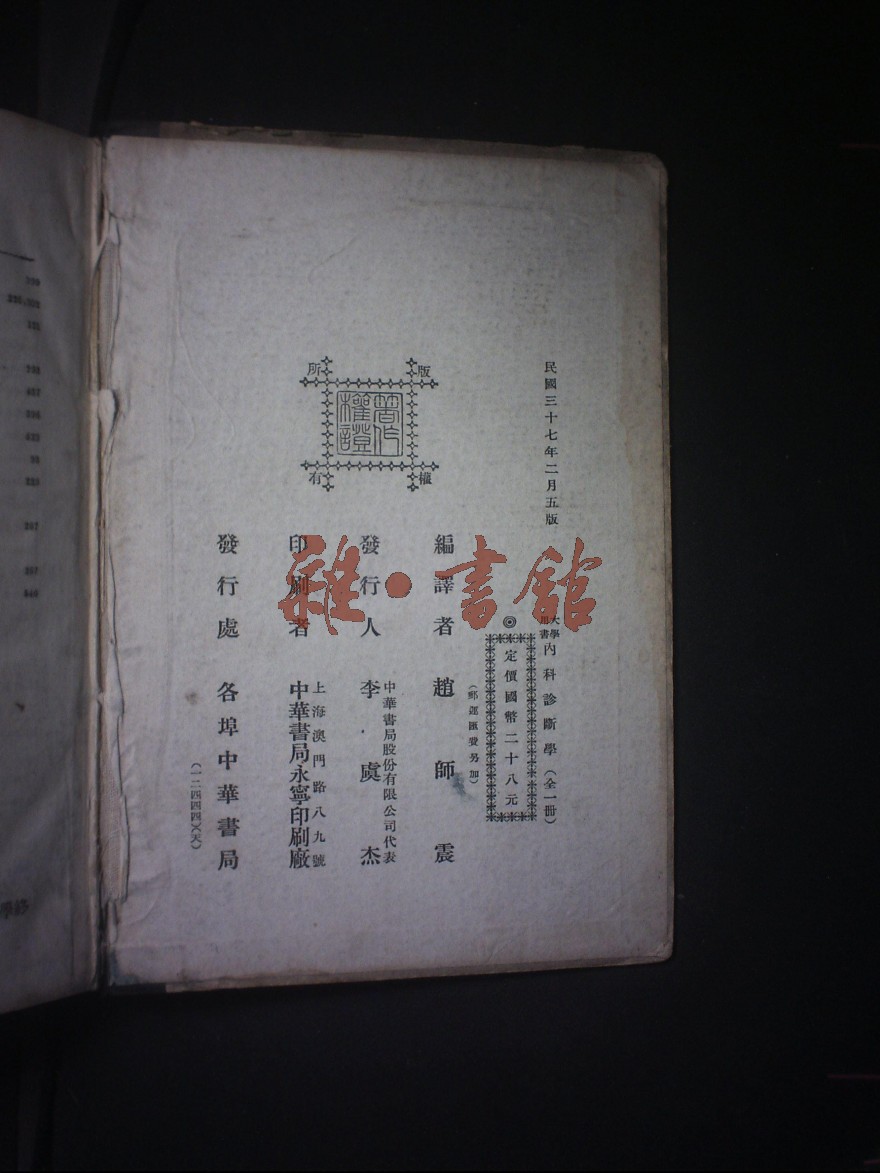 民國三十七年二月五版
大學用書 內科診斷學（全一冊）
◎定價國幣二十八元
（郵運匯費另加）
編譯者 趙師震
中華書局股份有限公司代表
發行人 李虞杰
上海澳門路八九號
印刷者 中華書局永寧印刷廠
發行處 各埠中華書局
（一二四四四）（天）
版權所有
著作權證
雜·書館